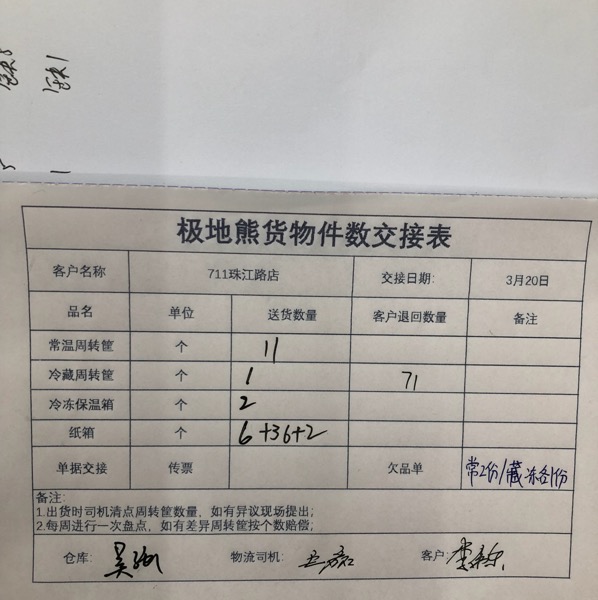 缺1
1
极地熊货物件数交接表
客户名称 711珠江路店 交接日期: 3月20日
品名 单位 送货数量 客户退回数量 备注
常温周转筐 个 11
冷藏周转筐 个 1 71
冷冻保温箱 个 2
纸箱 个 6+36+2
单据交接 传票 欠品单 常2份/藏冻各1份
备注:
1.出货时司机清点周转筐数量，如有异议现场提出;
2.每周进行一次盘点，如有差异周转筐按个数赔偿;
仓库: 物流司机: 客户: